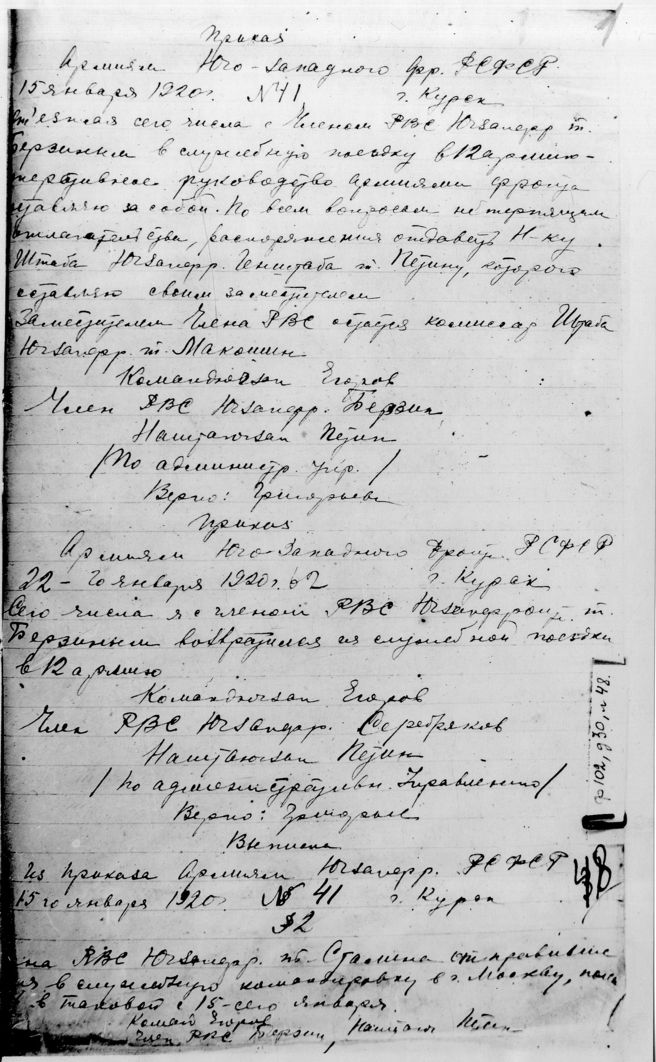 Приказ
Армиям Юго-Западного Фр. РСФСР
15 января 1920 г. №41 г. Курск
сего числа с Членом РВС Югзапфр т.
Берзиным в служебную поездку в 12 армию-
руководство армиями фронта
оставляю за собой. По всем вопросам не терпящим
отлагательства, распоряжения отдавать Н-ку
Штаба Югзапфр. Генштаба т. Петину, которого
оставляю своим заместителем
Заместителем Члена РВС остается комиссар Штаба
Югзапфр. т. Макошин
Командюгзап Егоров
Член РВС Югзапфр. Берзин
Наштаюгзап Петин
/По администр. упр./
Верно: Григорьев
Приказ
Армиям Юго-Западного Фронт. РСФСР
22-го января 1920 г. 62 г. Курск
Сего числа я с членом РВС Югзапфронт т.
Берзиным возвратился из служебной поездки
в 12 армию
Командюгзап Егоров
Член РВС Югзапфр. Серебряков
Наштаюгзап Петин
/По административн. Управлению/
Верно: Григорьев
Выписка
Из приказа Армиям Югзапфр. РСФСР
15 го января 1920 г. № 41 г. Курск
§2
на РВС Югзапфр. т. Сталина отправивше
в служебную командировку в г. Москву,
в таковой с 15-сего января.
Команд Егоров
Член РВС Берзин, Наштаюг Петин
ф102, д30, л48.
48